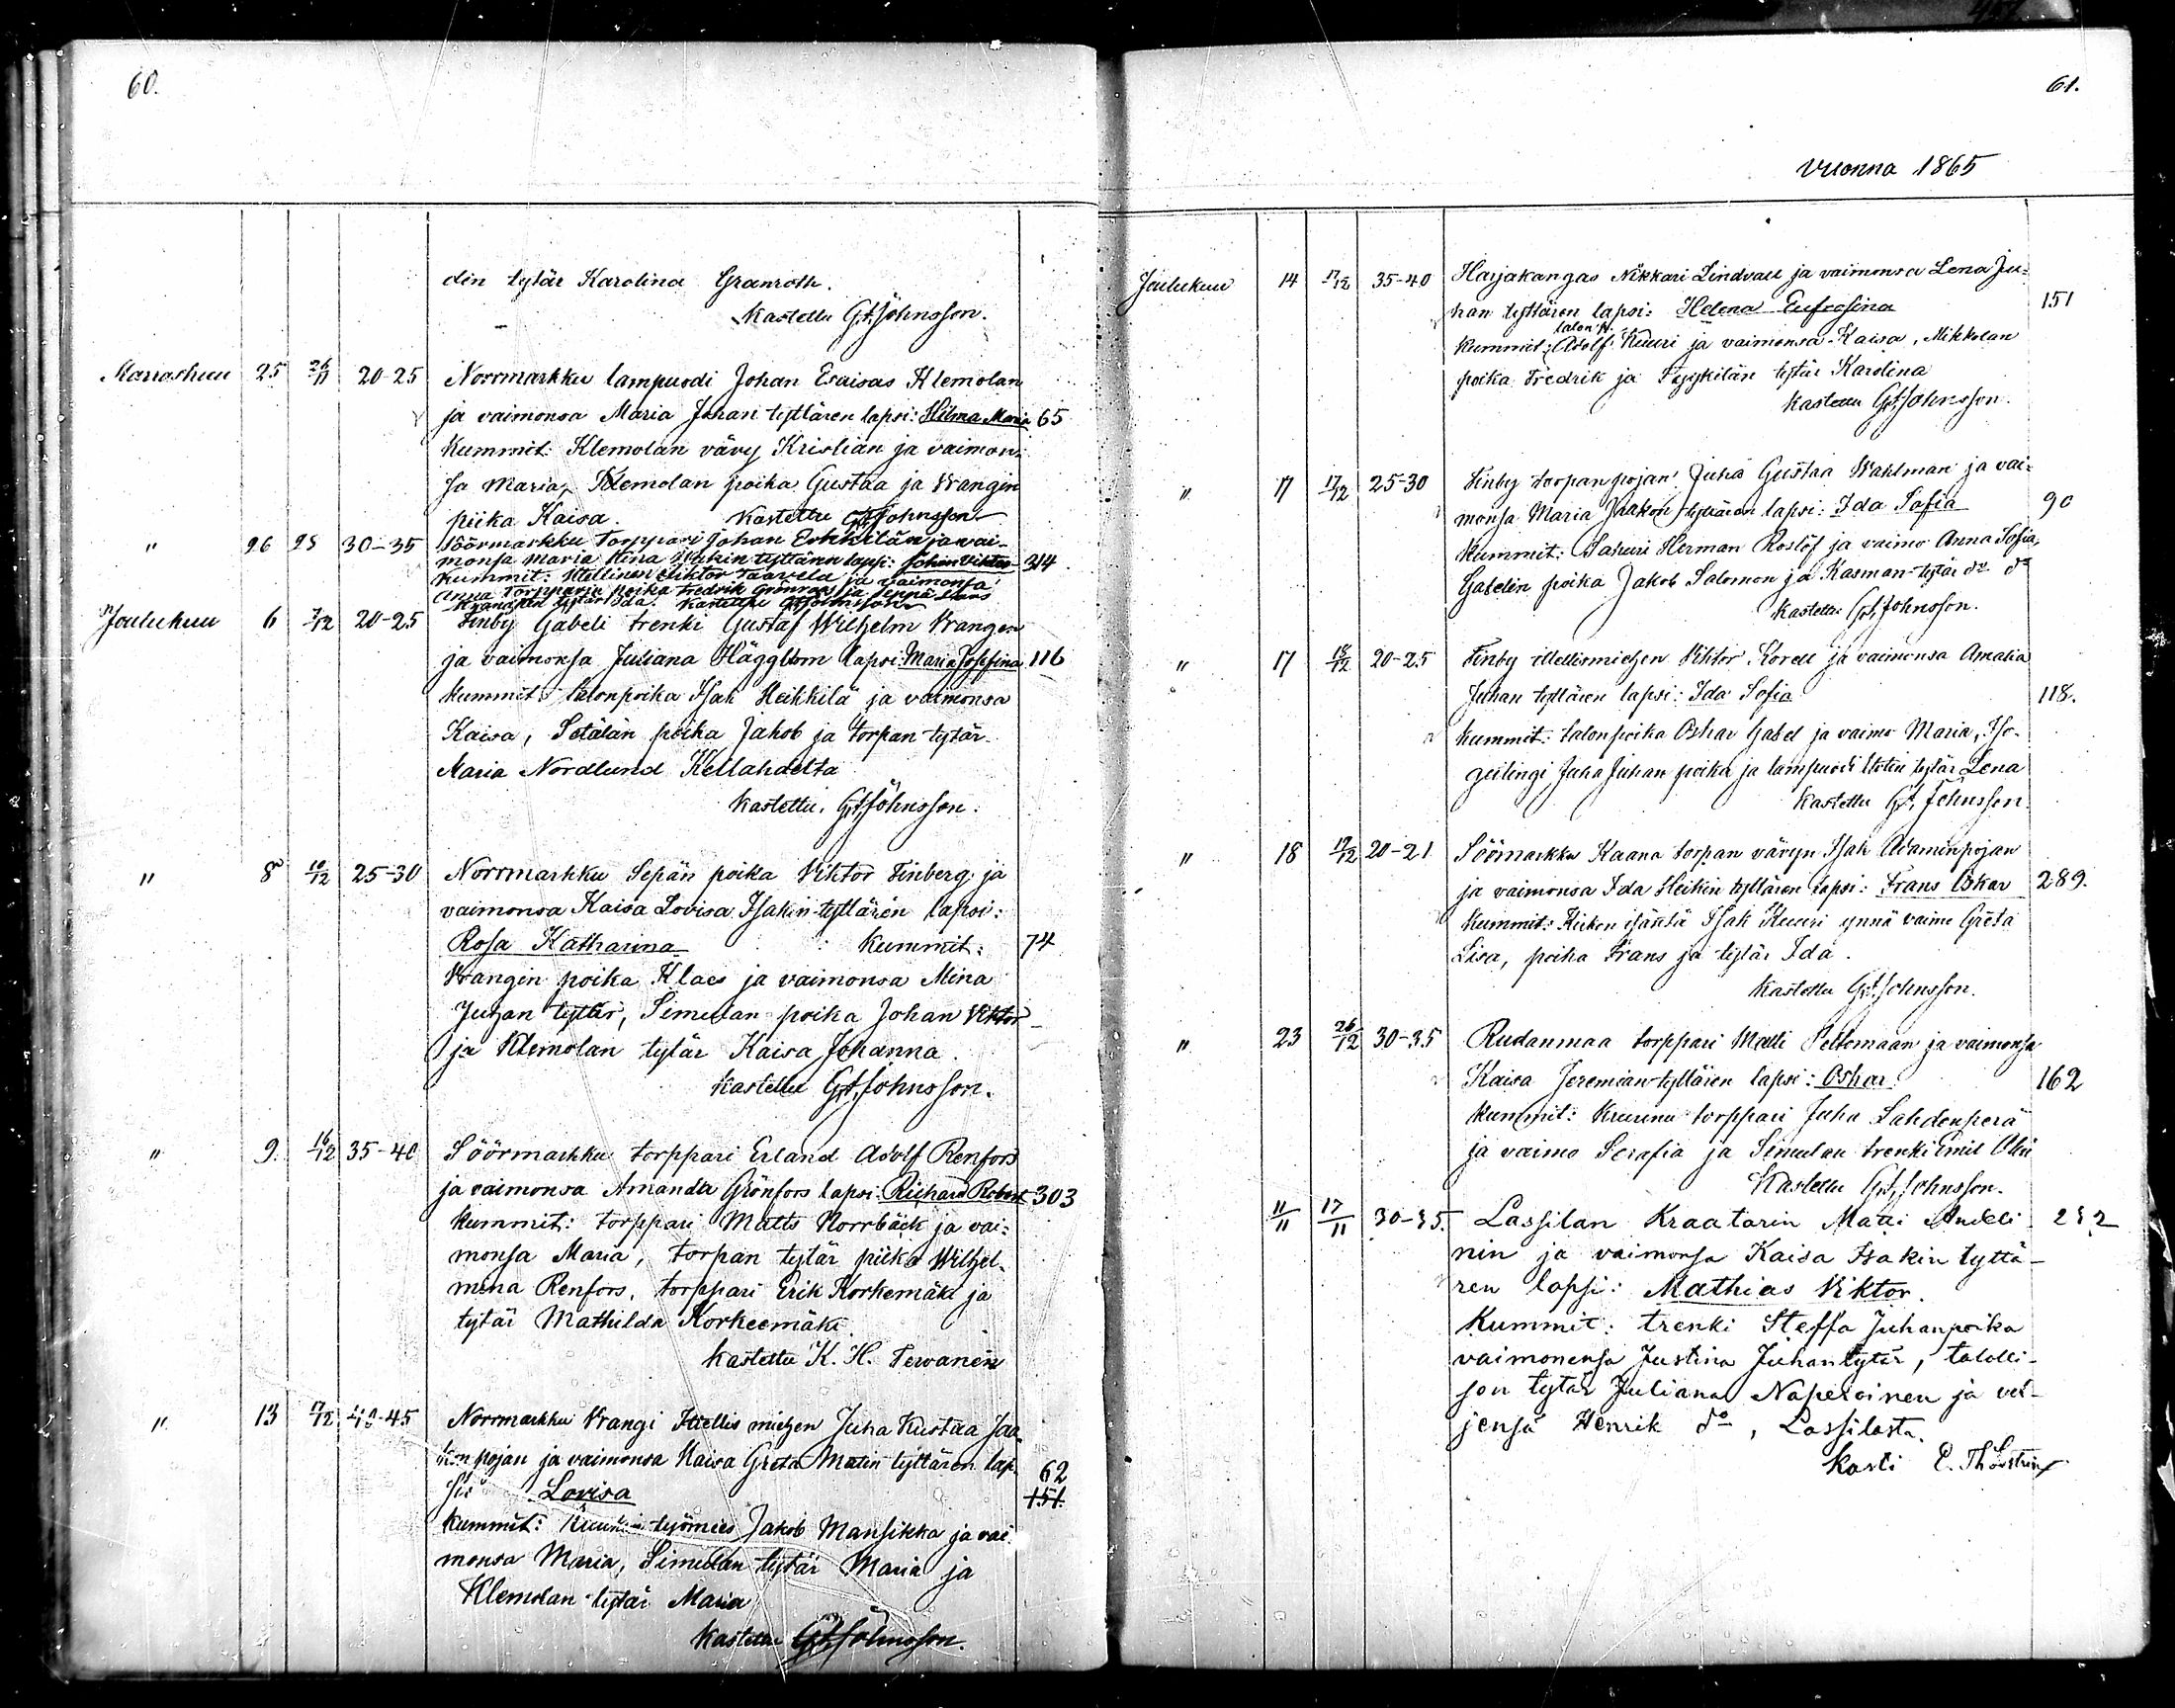 60.
din tytär Karolina Granroth.
Kastettu G.A. Johnsson.
Marraskuu 25 26/11 20-25 Norrmarkku lampuodi Johan Esaisas Klemolan
ja vaimonsa Maria Juhan tyttären lapsi: Hilma Maria 65
Kummit: Klemolan vävy Kristian ja vaimon-
sa Maria, Klemolan poika Gustaa ja Vrangin
piika Kaisa. Kastettu G.A. Johnsson
" 26 28 30-35 Söörmarkku Torppari Johan Erkkilän ja vai-
monsa Maria Stina tyttären lapsi: Johan Viktor 314
Kummit: Itellinen Viktor Taavela ja vaimonsa
Anna Torpparin poika Fredrik Grönroos ja Seppä
tytär Ida. Kastettu G.A. Johnsson
Joulukuu 6 7/12 20-25 Finby Gabeli trenki Gustaf Wilhelm Vrangen
ja vaimonsa Juliana Häggblom lapsi: Maria Josefina 116
Kummit: talonpoika Isak Heikkilä ja vaimonsa
Kaisa, Setälän poika Jakob ja torpan tytär
Maria Nordlund Kellahdelta
Kastettu. G.A. Johnsson.
" 8 10/12 25-30 Norrmarkku Sepän poika Viktor Finberg ja
vaimonsa Kaisa Lovisa Isakin tyttären lapsi:
Rosa Katharina Kummit: 74
Vrangin poika Klaes ja vaimonsa Mina
Juhan tytär, Simulan poika Johan Viktor
ja Klemolan tytär Kaisa Johanna.
Kastettu G.A. Johnsson.
" 9. 16/12 35-40 Söörmarkku torppari Erland Adolf Renfors
ja vaimonsa Amanda Grönfors lapsi: Richard Robert 303
Kummit: torppari Matts Norrbäck ja vai-
monsa Maria, torpan tytär piika Wilhel-
mina Renfors, torppari Erik Korkemäki ja
tytär Mathilda Korkeemäki.
Kastettu K. H. Terwanen
" 13 17/12 40-45 Norrmarkku Vrangi Itellis miehen Juha Kustaa Jaa-
kon pojan ja vaimonsa Kaisa Greta Matin tyttären lap-
si: Lovisa 62
151.
Kummit: työmies Jakob Mansikka ja vai-
monsa Maria, Simulan tytär Maria ja
Klemolan tytär Maria
Kastettu G.A. Johnsson.
61.
Vuonna 1865
Joulukuu 14 17/12 35-40 Harjakangas Nikkari Lindvall ja vaimonsa Lena Ju-
han tyttären lapsi: Helena Eufrosina 151
talon p.
Kummit: Adolf Kuuri ja vaimonsa Kaisa, Mikkolan
poika Fredrik ja Tyykilän tytär Karolina
Kastettu G.A. Johnsson.
" 17 17/12 25-30 Finby torpan pojan Juha Gustaa Wahlman ja vai-
monsa Maria Jaakon tyttären lapsi: Ida Sofia 90
Kummit: Herman Roslöf ja vaimo Anna Sofia,
Gabelin poika Jakob Salomon ja Kasman tytär do do
Kastettu G.A. Johnsson.
" 17 18/12 20-25 Finby itellismiehen Viktor Korell ja vaimonsa Amalia
Juhan tyttären lapsi: Ida Sofia 118.
Kummit: talonpoika Oskar Gabel ja vaimo Maria, Iso-
geilingi Juha Juhan poika ja lampuodi tytär Lena
Kastettu G.A. Johnsson.
" 18 19/12 20-21 Söömarkku Kaana torpan vävyn Isak Adaminpojan
ja vaimonsa Ida Heikin tyttären lapsi: Frans Oskar 289.
Kummit: isäntä Isak Kuuri ynnä vaimo Greta
Lisa, poika Frans ja tytär Ida.
Kastettu G.A. Johnsson.
" 23 26/12 30-35 Rudanmaa torppari Matti Peltomaan ja vaimonsa
Kaisa Jeremian tyttären lapsi: Oskar 162
Kummit: torppari Juha Lahdenperä
ja vaimo Serafia ja Simulan trenki Emil
Kastettu G.A. Johnsson.
11/11 17/11 30-35. Lassilan Kraatarin Matti Andeli-
nin ja vaimonsa Kaisa Isakin tyttä-
ren lapsi: Mathias Viktor.
Kummit: trenki Steffa Juhanpoika
vaimonensa Justina Juhantytär, talolli-
sen tytär Juliana Naperoinen ja vel-
jensä Henrik do, Lassilasta.
Kasti